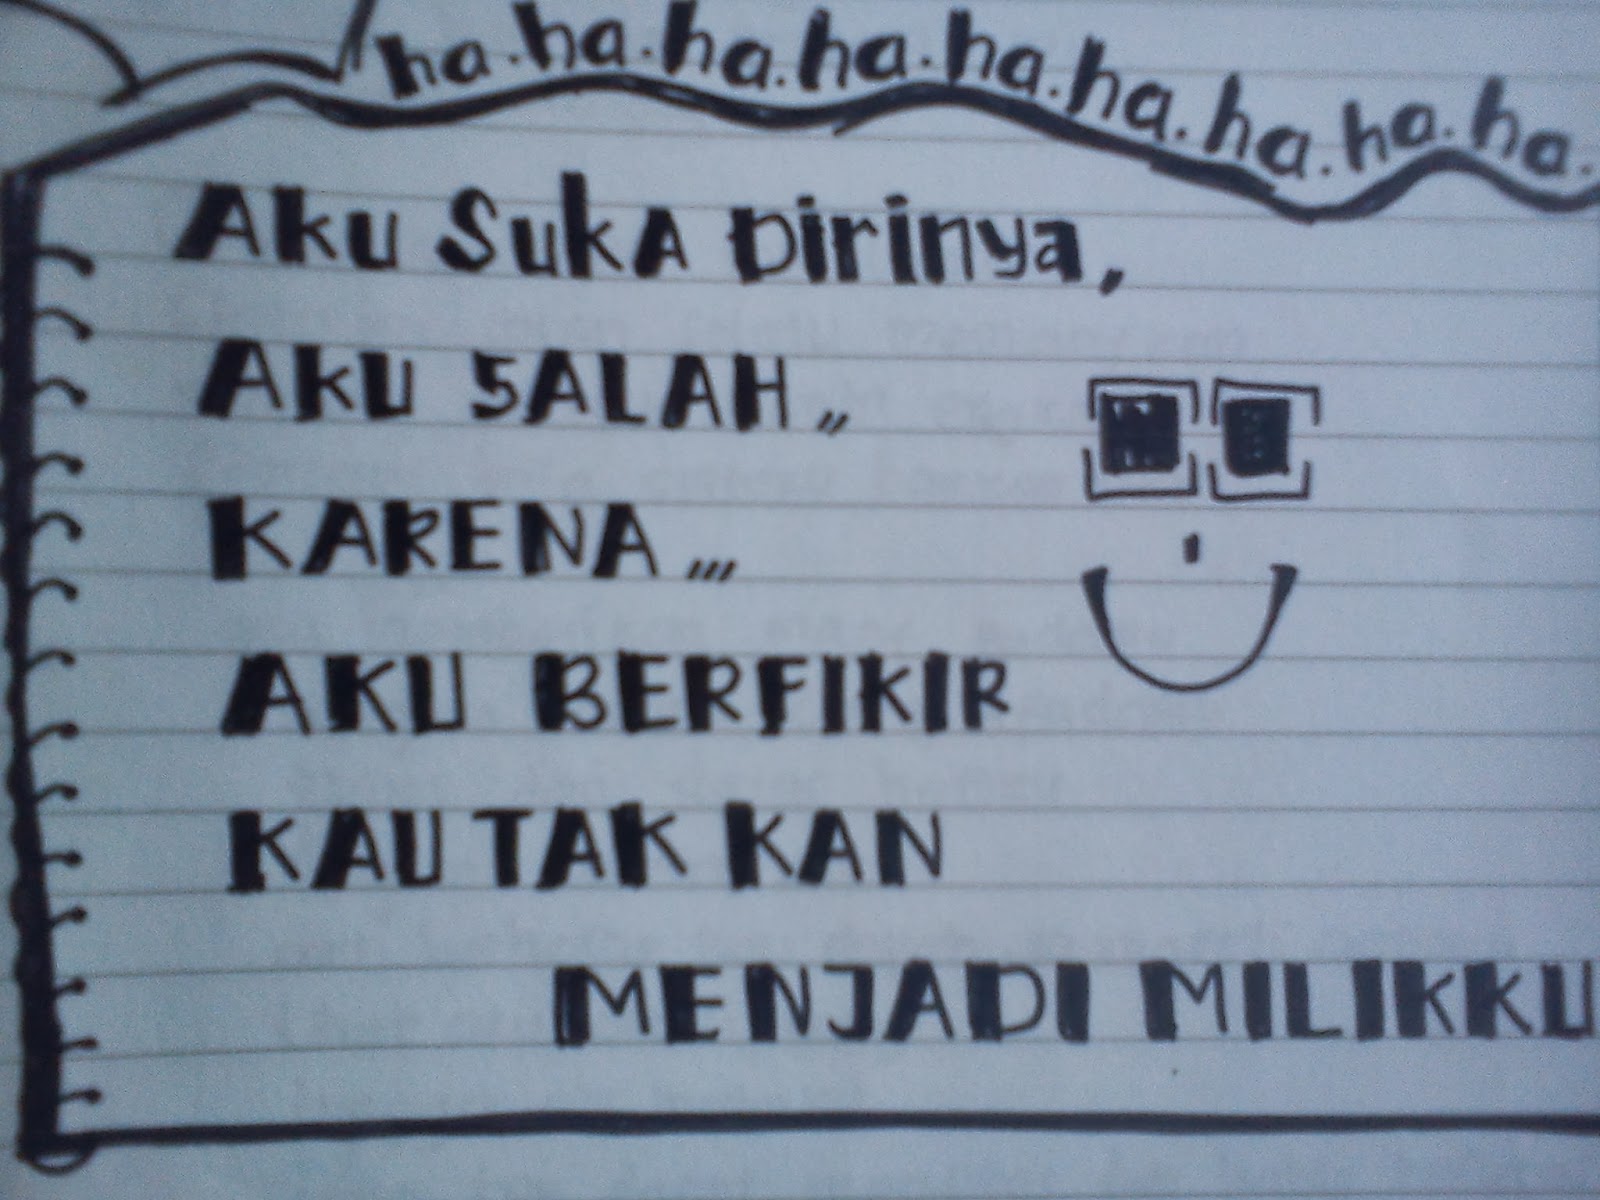 ha.ha.ha.ha.ha.ha.ha.ha.ha.
Aku SukA Dirinya,
AKU SALAH,,
KARENA,,,
AKU BERFIKIR
KAU TAK KAN
MENJADI MILIKKU